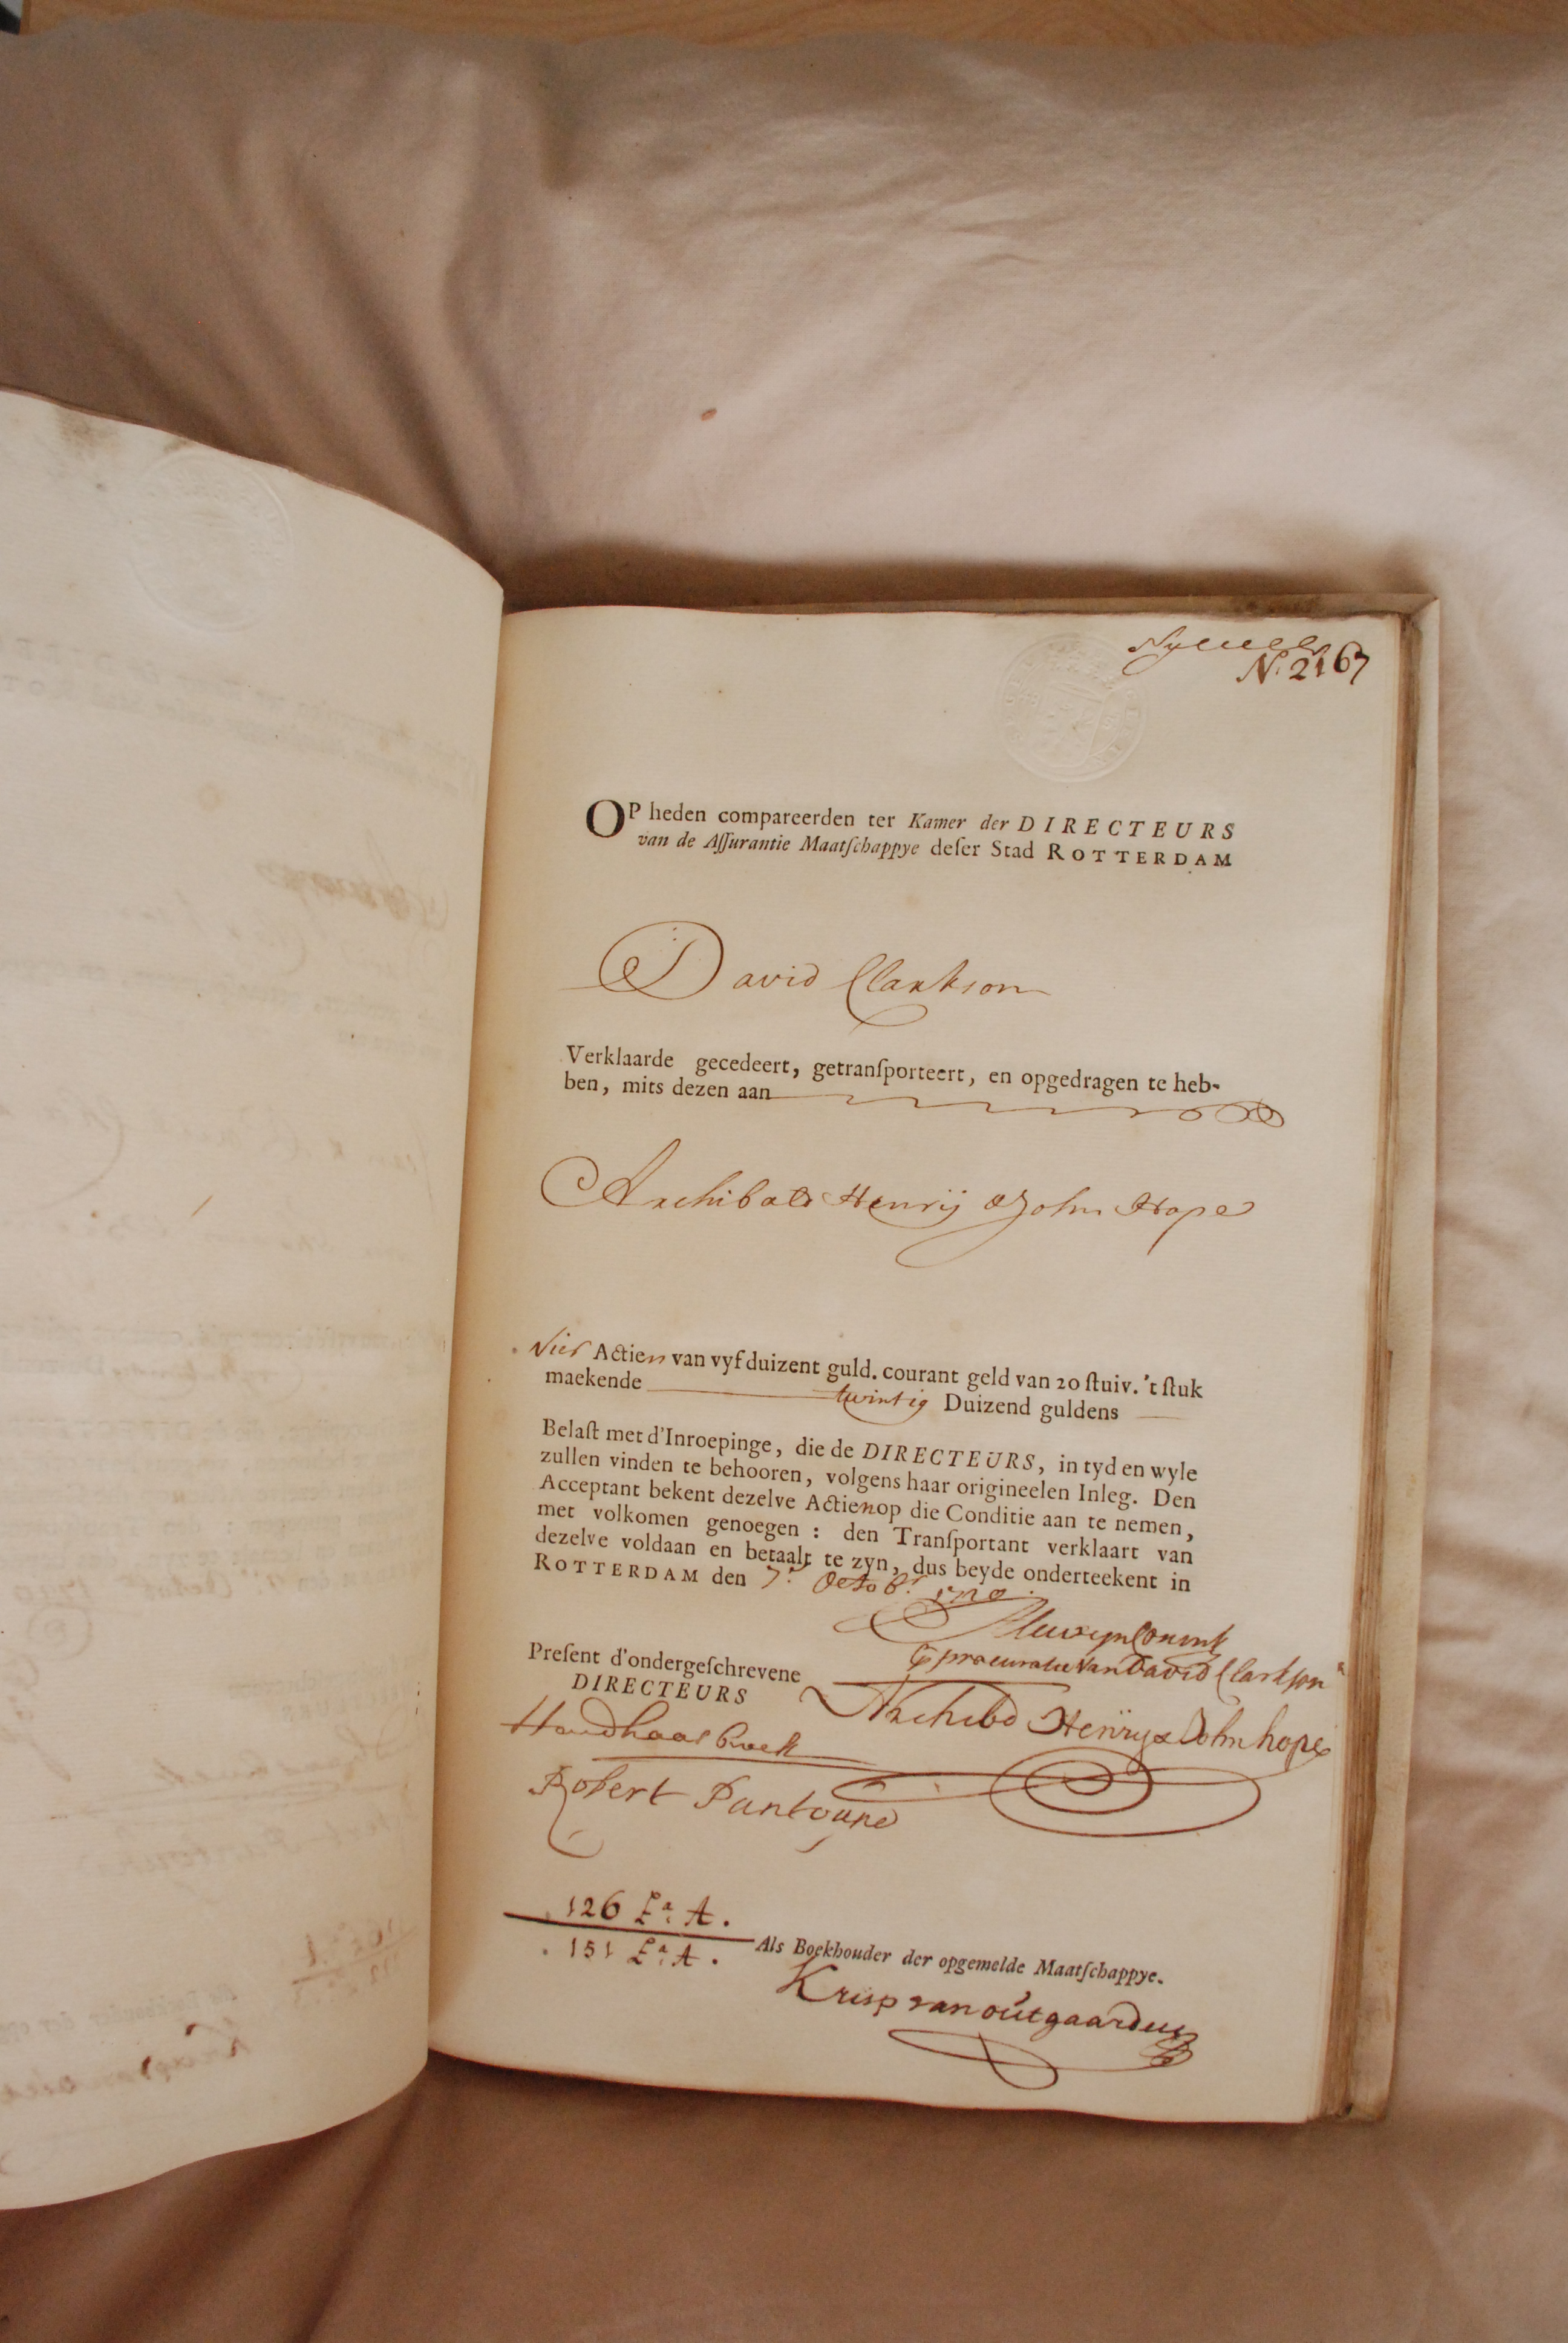 N. 2167
OP heden compareerden ter Kamer der DIRECTEURS
van de Aſſurantie Maatſchappye deſer Stad ROTTERDAM
David Clarkson
Verklaarde gecedeert, getranſporteert, en opgedragen te heb-
ben, mits dezen aan
Archibald Henrij & John Hope
Vier Actien van vyf duizent guld. courant geld van 20 ſtuiv. 't ſtuk
maekende twintig Duizend guldens
Belaſt met d'Inroepinge, die de DIRECTEURS, in tyd en wyle
zullen vinden te behooren, volgens haar origineelen Inleg. Den
Acceptant bekent dezelve Actien op die Conditie aan te nemen,
met volkomen genoegen : den Tranſportant verklaart van
dezelve voldaan en betaalt te zyn, dus beyde onderteekent in
ROTTERDAM den 7.e Octob.r 1720
p procuratie van David Clarkson
Preſent d'ondergeſchrevene
DIRECTEURS
Archibd Henrij & John hope
Robert
126 La. A.
151 La. A.
Als Boekhouder der opgemelde Maatſchappye.
Krisp van outgaarden